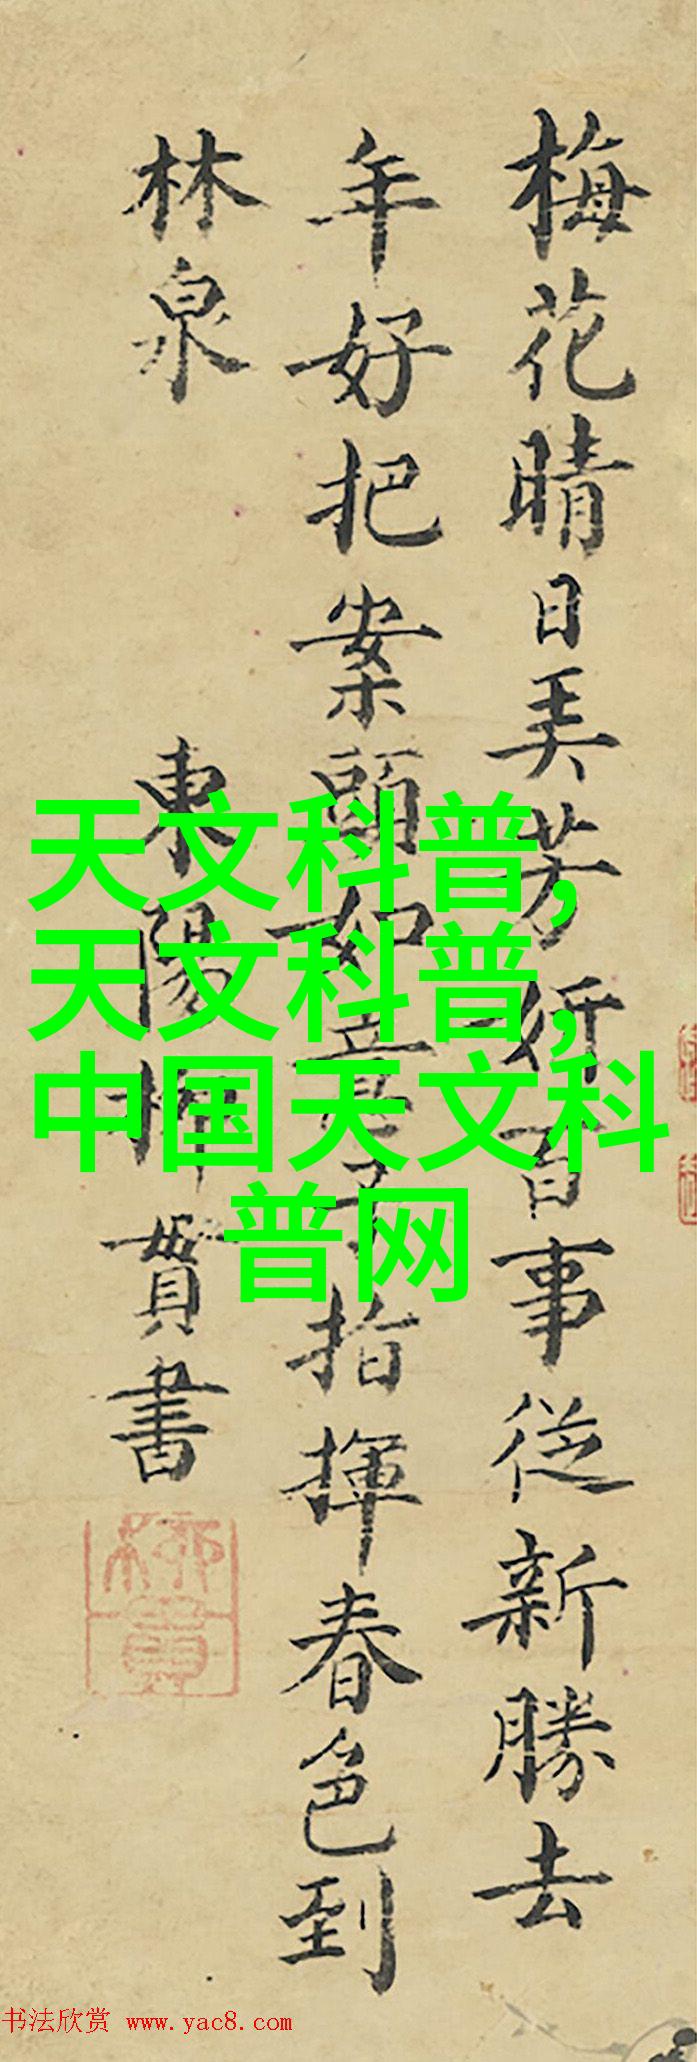 梅花晴日美芳妍百事從新勝去
年好把案頭如意子指揮春色到
林泉
東陽柳貫書
柳貫
天文科普,
天文科普,
中国天文科
普网
书法欣赏 www.yac8.com